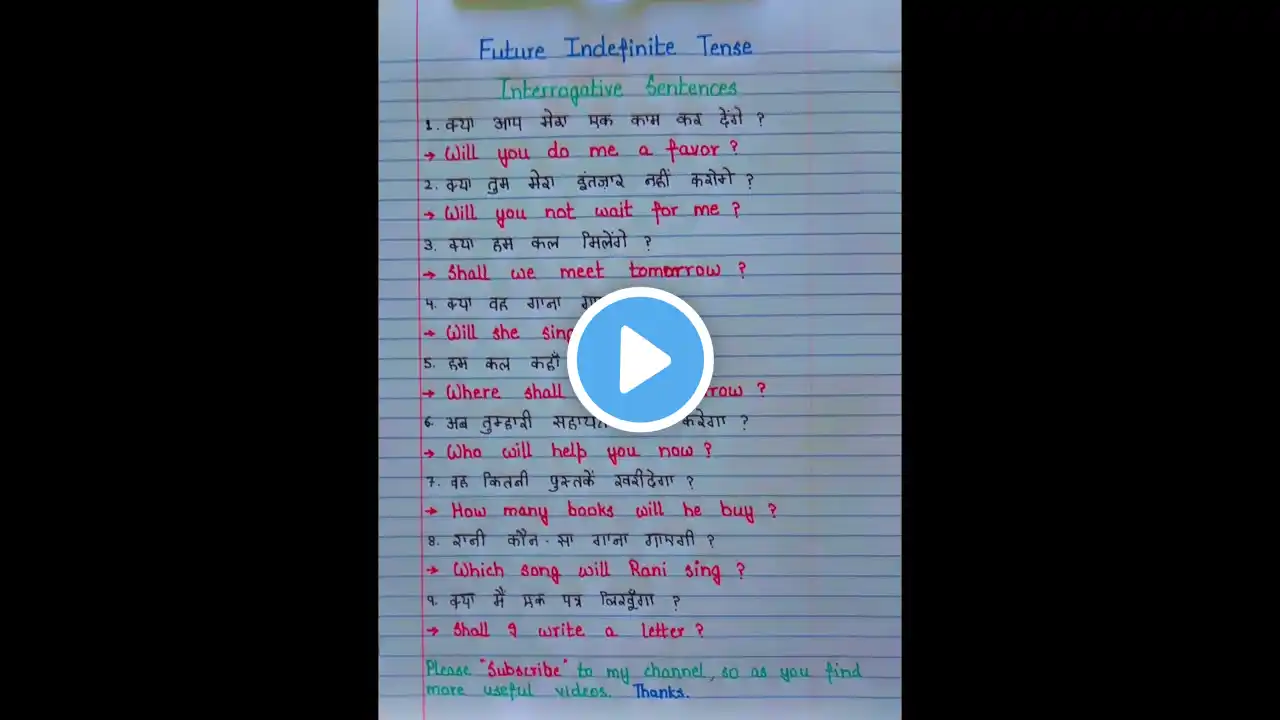 Future Indefinite Tense
Interrogative Sentences
1. क्या आप मेरा एक काम कर देंगे ?
→ Will you do me a favor ?
2. क्या तुम मेरा इंतज़ार नहीं करोगे ?
→ Will you not wait for me ?
3. क्या हम कल मिलेंगे ?
→ Shall we meet tomorrow ?
४. क्या वह गाना
→ Will she
5. हम कल कहाँ
→ Where shall ?
6. अब तुम्हारी करेगा ?
→ Who will help you now ?
7. वह कितनी पुस्तकें खरीदेगा ?
→ How many books will he buy ?
8. रानी कौन-सा गाना गाएगी ?
→ Which song will Rani sing ?
९. क्या मैं एक पत्र लिखूँगा ?
→ Shall I write a letter ?
Please "Subscribe" to my channel, so as you find
more useful videos. Thanks.